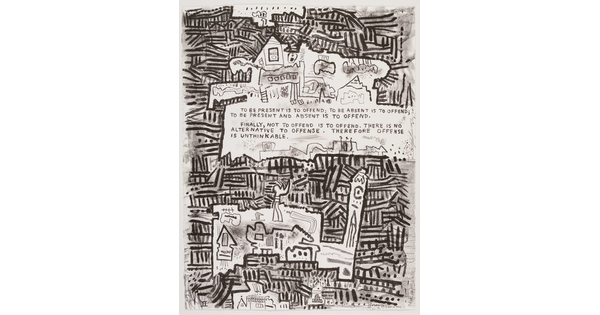 TO BE PRESENT IS TO OFFEND; TO BE ABSENT IS TO OFFEND;
TO BE PRESENT AND ABSENT IS TO OFFEND.
FINALLY, NOT TO OFFEND IS TO OFFEND. THERE IS NO
ALTERNATIVE TO OFFENSE. THEREFORE OFFENSE
IS UNTHINKABLE.